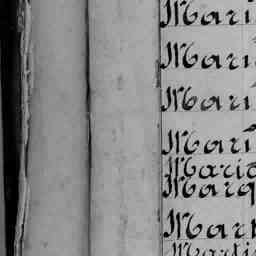 Mari
Mari
Mari
Mari
Maria
Marg
Mart
Marti